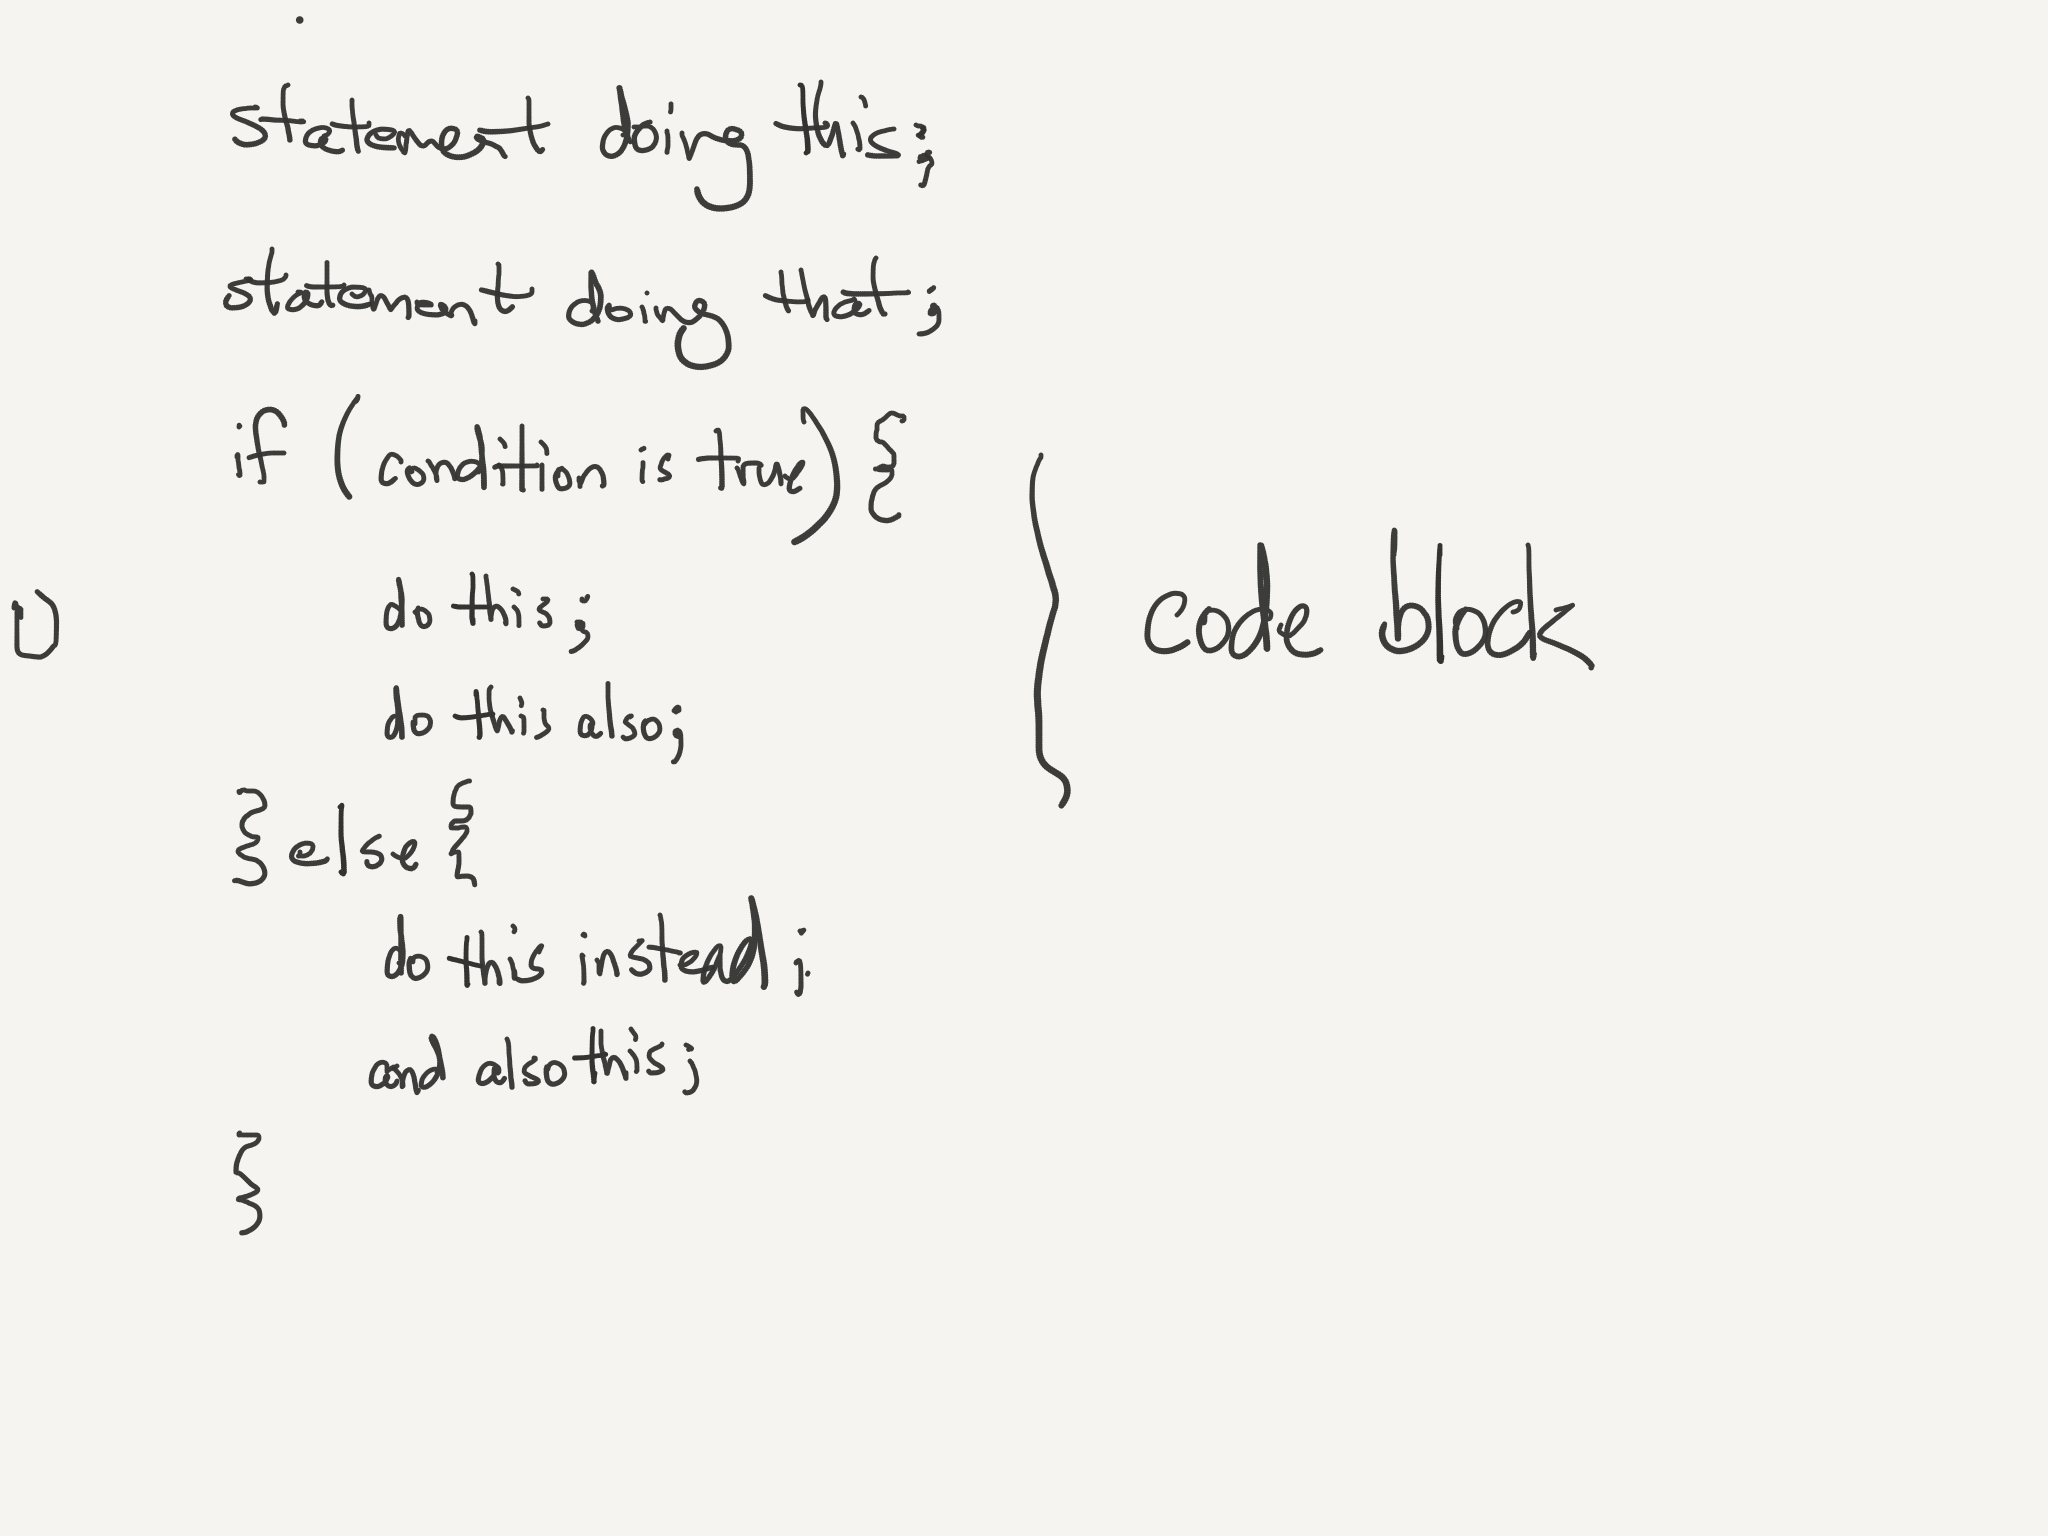 statement doing this;
statement doing that;
if (condition is true) {
do this;
do this also;
} else {
do this instead;
and also this;
}
} code block